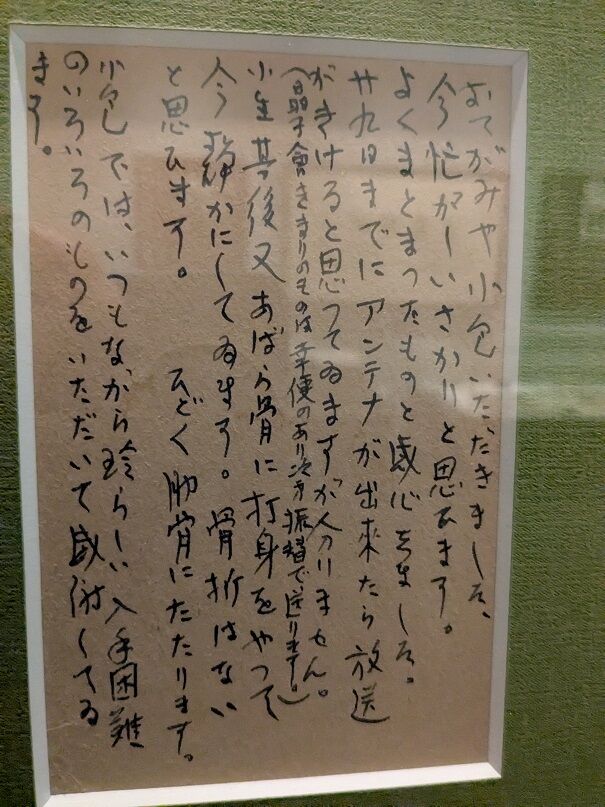 おてがみや小包いただきました、
今忙がしいさかりと思ひます。
よくまとまったものと感心しました。
廿九日までにアンテナが出来たら放送
がきけると思ってゐますが分りません。
(晶子會きまりのものは幸便のあり次才振替で送ります)
小生其後又あばら骨に打身をやって
今静かにしてゐます。骨折はない
と思ひます。 ひどく肋骨にたたります。
小包では、いつもながら珍らしい入手困難
のいろいろのものをいただいて感謝してゐ
ます。